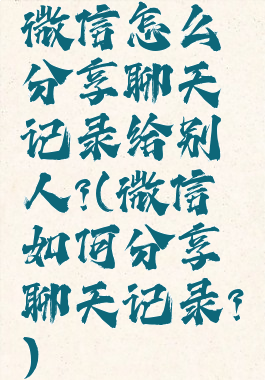 微信怎么
分享聊天
记录给别
人?(微信
如何分享
聊天记录?
)